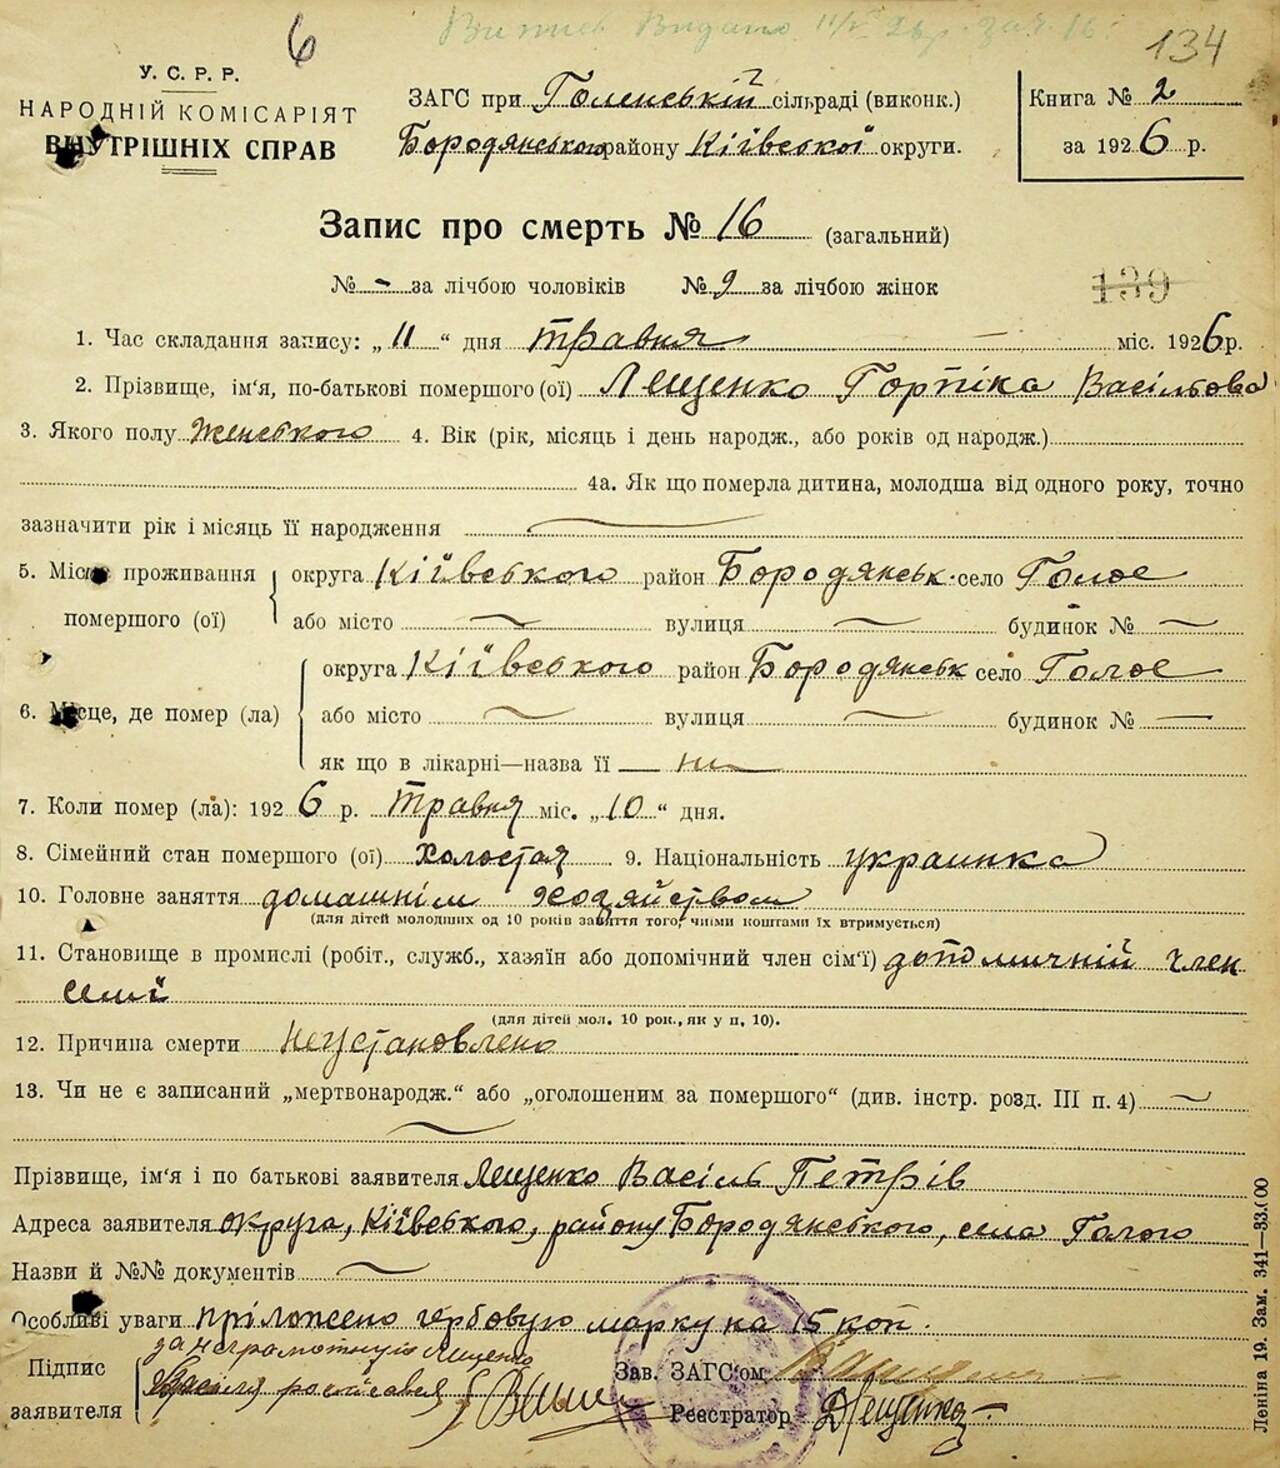 6
Випись Видано 11/V 26 р. за № 16.
134
У. С. Р. Р.
НАРОДНІЙ КОМІСАРІЯТ
ВНУТРІШНІХ СПРАВ
ЗАГС при Голенській сільраді (виконк.)
Бородянського району Кіївської округи.
Книга № 2
за 1926 р.
Запис про смерть № 16 (загальний)
№ - за лічбою чоловіків № 9 за лічбою жінок
139
1. Час складання запису: „11“ дня травня міс. 1926 р.
2. Прізвище, ім'я, по-батькові помершого (ої) Лещенко Горпіка Васільова
3. Якого полу Женського 4. Вік (рік, місяць і день народж., або років од народж.)
4а. Як що померла дитина, молодша від одного року, точно
зазначити рік і місяць її народження
5. Місце проживання помершого (ої) округа Кіївського район Бородянськ. село Голое
або місто вулиця будинок №
6. Місце, де помер (ла) округа Кіївського район Бородянськ село Голое
або місто вулиця будинок №
як що в лікарні—назва її ни
7. Коли помер (ла): 1926 р. травня міс. „10“ дня.
8. Сімейний стан помершого (ої) холостая 9. Національність украинка
10. Головне заняття домашнім хозяйством
(для дітей молодших од 10 років заняття того, чиїми коштами їх втримується)
11. Становище в промислі (робіт., служб., хазяїн або допомічний член сім'ї) допомичній член
семї
(для дітей мол. 10 рок., як у п. 10).
12. Причина смерти Неустановлено
13. Чи не є записаний „мертвонародж.“ або „оголошеним за помершого“ (див. інстр. розд. III п. 4)
Прізвище, ім'я і по батькові заявителя Лещенко Васіль Петрів
Адреса заявителя округа, Кіївського, району Бородянського, села Голого
Назви й №№ документів
Особліві уваги пріложено гербовую марку на 15 коп.
Підпис заявителя за неграмотнуго Лещенко
Василя росписався
Зав. ЗАГС'ом
Реєстратор Д Лещенко
Леніна 19. Зам. 341—33.000